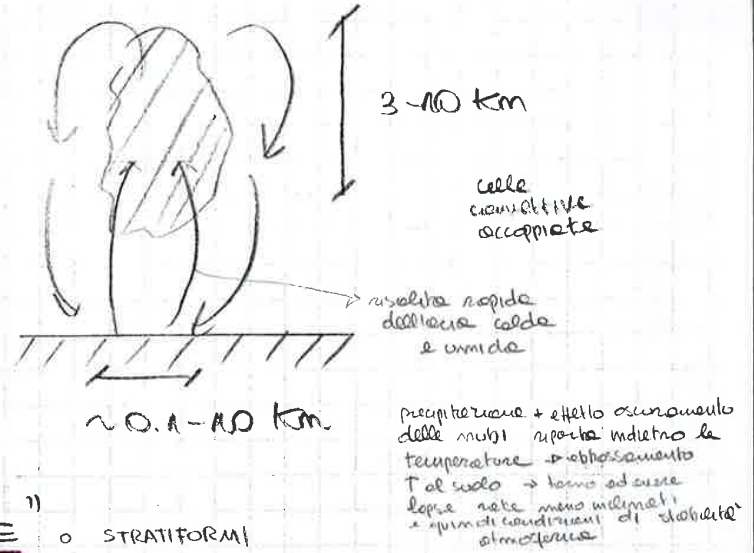 3-10 Km
celle
convettive
accoppiate
risalita rapida
dell'aria calda
e umida
~ 0.1-10 Km
precipitazione + effetto oscuramento
delle nubi riporta indietro la
temperatura → abbassamento
T al suolo → torno ad avere
lapse rate meno inclinati
e quindi condizioni di stabilità
atmosferica
1)
o STRATIFORMI